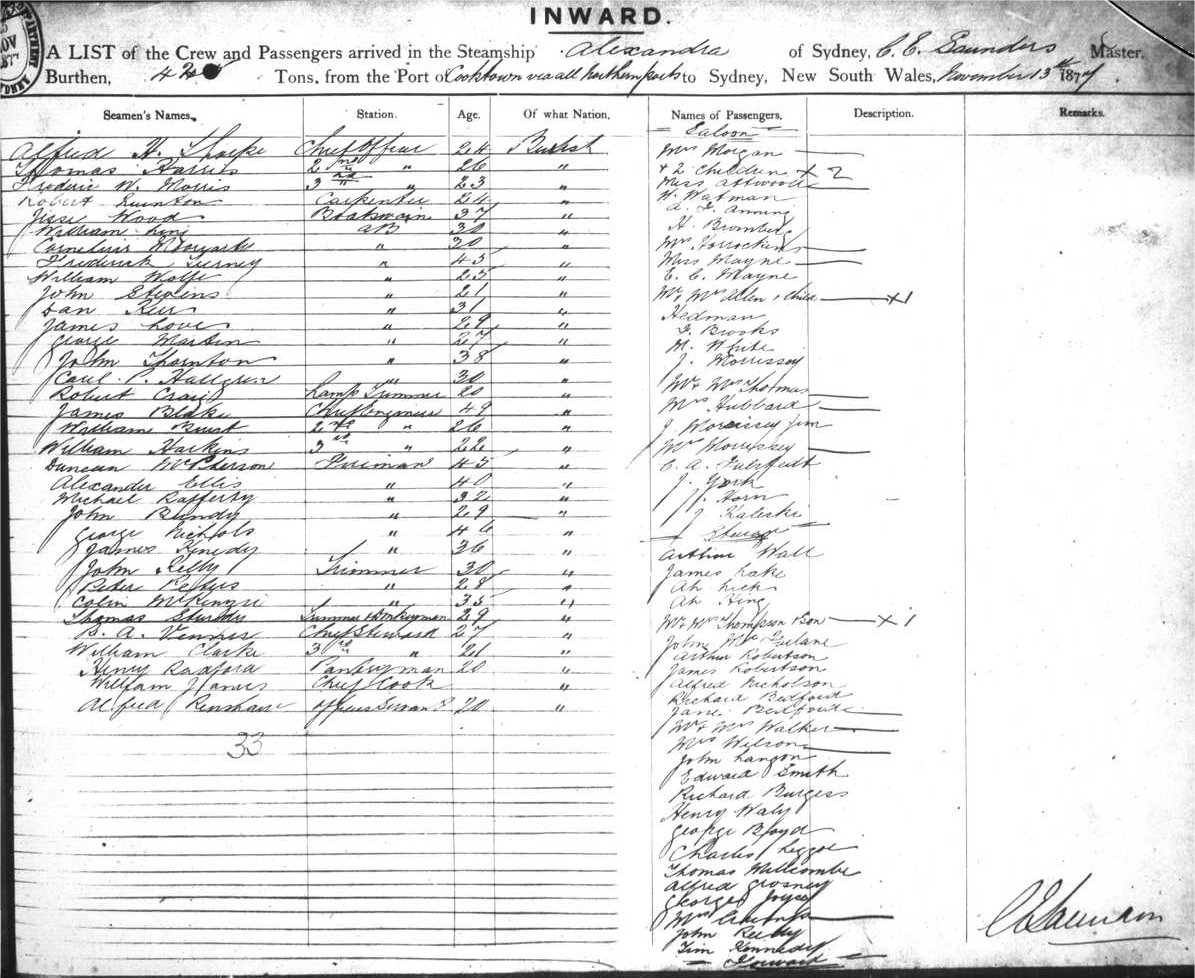 INWARD.
A LIST of the Crew and Passengers arrived in the Steamship Alexandra of Sydney, C. E. Saunders Master.
Burthen, Tons, from the Port of Cooktown via all Northern ports to Sydney, New South Wales, November 13th 1877
Seamen's Names. Station. Age. Of what Nation.
Alfred H. Sharpe Chief Officer 24 British
Thomas Harris 2nd " 26 "
Frederic W. Morris 3rd " 23 "
Robert Carpenter 24 "
Jesse Wood Boatswain 37 "
William AB 30 "
Cornelius " 30 "
Frederick Tierney " 45 "
William Wolfe " 25 "
John Stevens " 21 "
Dan Keir " 31 "
James Love " 29 "
George Martin " 27 "
John Thornton " 38 "
Carl P. Hallgren " 30 "
Robert Craig Lamp Trimmer 20 "
James Blake Chief Engineer 49 "
William 2nd " 26 "
William Harkins 3rd " 22 "
Duncan McPherson Fireman 45 "
Alexander Ellis " 40 "
Michael Rafferty " 32 "
John Bundy " 29 "
George Nichols " 46 "
James Kenedy " 36 "
John Kelly Trimmer 30 "
Peter Peters " 28 "
Colin McKenzie " 35 "
Thomas Sturdy Trimmer & Donkeyman 29 "
B. A. Venner Chief Steward 27 "
William Clarke 3rd " 21 "
Henry Radford Pantryman 20 "
William James Chief Cook "
Alfred Renshaw Officers Servant 20 "
33
Names of Passengers, Description. Remarks.
Saloon
Mrs Morgan
& 2 Children x 2
Miss Attwood
W. Watman
A. J. Anning
H. Bromberg
Mrs Horrockins
Miss Mayne
E. C. Mayne
Mr & Mrs Allen & Child x1
Hedman
J. Brooks
M. White
J. Morrissey
Mr & Mrs Thotmas
Mrs Hubbard
J. Morrissey Jun
Mr Morrissey
C. A.
J. York
J. Horn
J. Kaleske
Steerage
Arthur Wall
James Lake
Ah Lick
Ah Hing
Mr & Mrs Thompson & Son x1
John
Arthur Robertson
James Robertson
Alfred Nicholson
Richard Bedford
Jane Bedford
Mr & Mrs Walker
Mrs Wilson
John Langon
Edward Smith
Richard Burgess
Henry Waly
George Bloyd
Charles Leggoe
Thomas Wellcombe
Alfred Crosney
George Joyce
Mrs
John Reeby
Tim Kennedy
Forward
C E Saunders